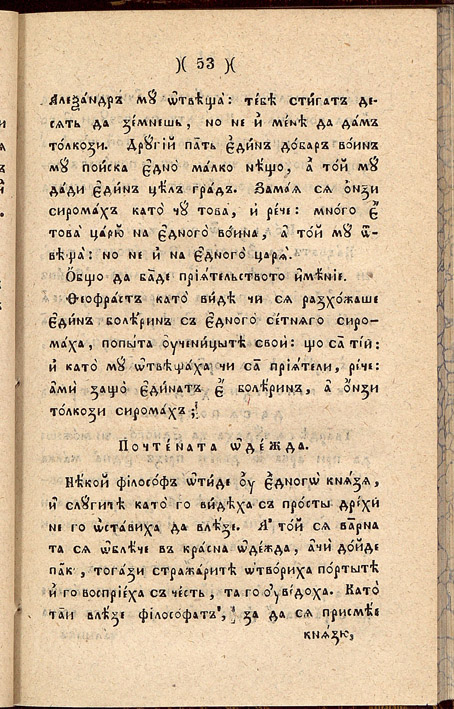 )( 53 )(
Алеѯа́ндръ мꙋ̀ ѿвѣща̀: те́бѣ сти́гатъ де-
сять да зе́мнешь, но не и҆ ме́нѣ да да́мъ
то́лкози. Дрꙋ́гїй па́ть є҆ди́нъ до́баръ во́инъ
мꙋ̀ пои́ска є҆дно̀ ма́лко нѣ́що, а҆ то́й мꙋ̀
да́ди є҆ди́нъ цѣ́лъ гра́дъ. Зама́я ся ѻ҆́нзи
сирома́хъ като̀ чꙋ̀ това̀, и҆ ре́че: мно́го є҆̀
това̀ царю̀ на є҆дного во́ина, а҆ то́й мꙋ̀ ѿ-
вѣща̀: но не и҆ на є҆дного царя̀.
Ѻ҆́бщо да ба́де прїя́телството и҆мѣ́нїе.
Ѳеофра́стъ като̀ ви́дѣ чи ся разхо́жаше
є҆ди́нъ болѣ́ринъ съ є҆дного се́тняго сиро-
ма́ха, попы́та ѹ҆чени́цытѣ свои̑: що са̀ ті́и:
и҆ като̀ мꙋ̀ ѿвѣща́ха чи са̀ прїя́тели, ре́че:
а҆ми защо̀ є҆ди́натъ є҆̀ болѣ́ринъ, а҆ ѻ҆́нзи
то́лкози сирома́хъ;
Почте́ната ѡ҆де́жда.
Нѣ́кой фїло́софъ ѿи́де ѹ҆ є҆дногѡ кня́зя,
и҆ слꙋги́те като̀ го ви́дѣха съ про́сты дре́хи
не го ѡ҆ста́виха да влѣ́зе. А҆ то́й ся ва́рна
та ся ѡ҆блѣ́че въ кра́сна ѡ҆де́жда, а҆чи до́йде
па́к, тога́зи стража́ритѣ ѿво́риха по́ртытѣ
и҆ го воспрїе́ха съ че́сть, та го ѹ҆ведоха. Като̀
та́и влѣ́зе фїло́софатъ, за да ся присмѣ́е
кня́зю,